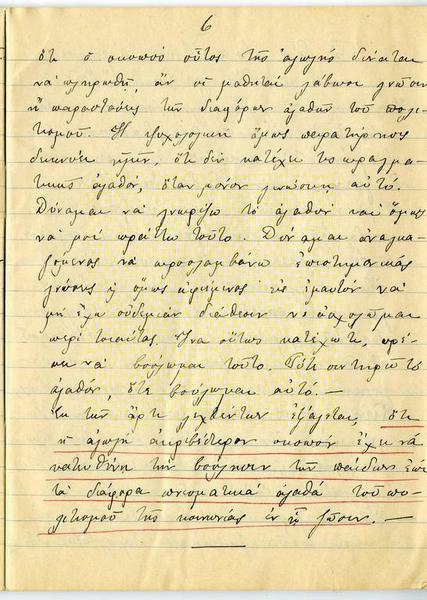 6
ὅτι ὁ σκοπὸς οὗτος τῆς ἀγωγῆς δύναται
νὰ πληρωθῇ, ἂν οἱ μαθηταὶ λάβωσι γνῶσιν
ἢ παραστάσεις τῶν διαφόρων ἀγαθῶν τοῦ πολι-
τισμοῦ. Ἡ ψυχολογικὴ ὅμως παρατήρησις
δεικνύει ἡμῖν, ὅτι δὲν κατέχει τις πραγμα-
τικῶς ἀγαθόν, ὅταν μόνον γινώσκῃ αὐτό.
Δύναμαι νὰ γνωρίζω τὸ ἀγαθὸν καὶ ὅμως
νὰ μὴ πράττω τοῦτο. Δύναμαι ἀναγκα-
ζόμενος νὰ προσλαμβάνω ἐπιστημονικὰς
γνώσεις ἢ ὅμως ἀφιέμενος εἰς ἐμαυτὸν νὰ
μὴ ἔχω οὐδεμίαν διάθεσιν νὰ ἀσχολῶμαι
περὶ τοιαύτας. Ἵνα οὕτως κατέχω τι, πρέ-
πει νὰ βούλωμαι τοῦτο. Τότε
ἀγαθόν, ὅτε βούλωμαι αὐτό. —
Ἐκ τῶν ἄρτι λεχθέντων ἐξάγεται, ὅτι
ἡ ἀγωγὴ ἀκριβέστερον σκοπὸν ἔχει νὰ
κατευθύνῃ τὴν βούλησιν τῶν παίδων ἐπὶ
τὰ διάφορα πνευματικὰ ἀγαθὰ τοῦ πο-
λιτισμοῦ τῆς κοινωνίας ἐν ᾗ ζῶσιν. —